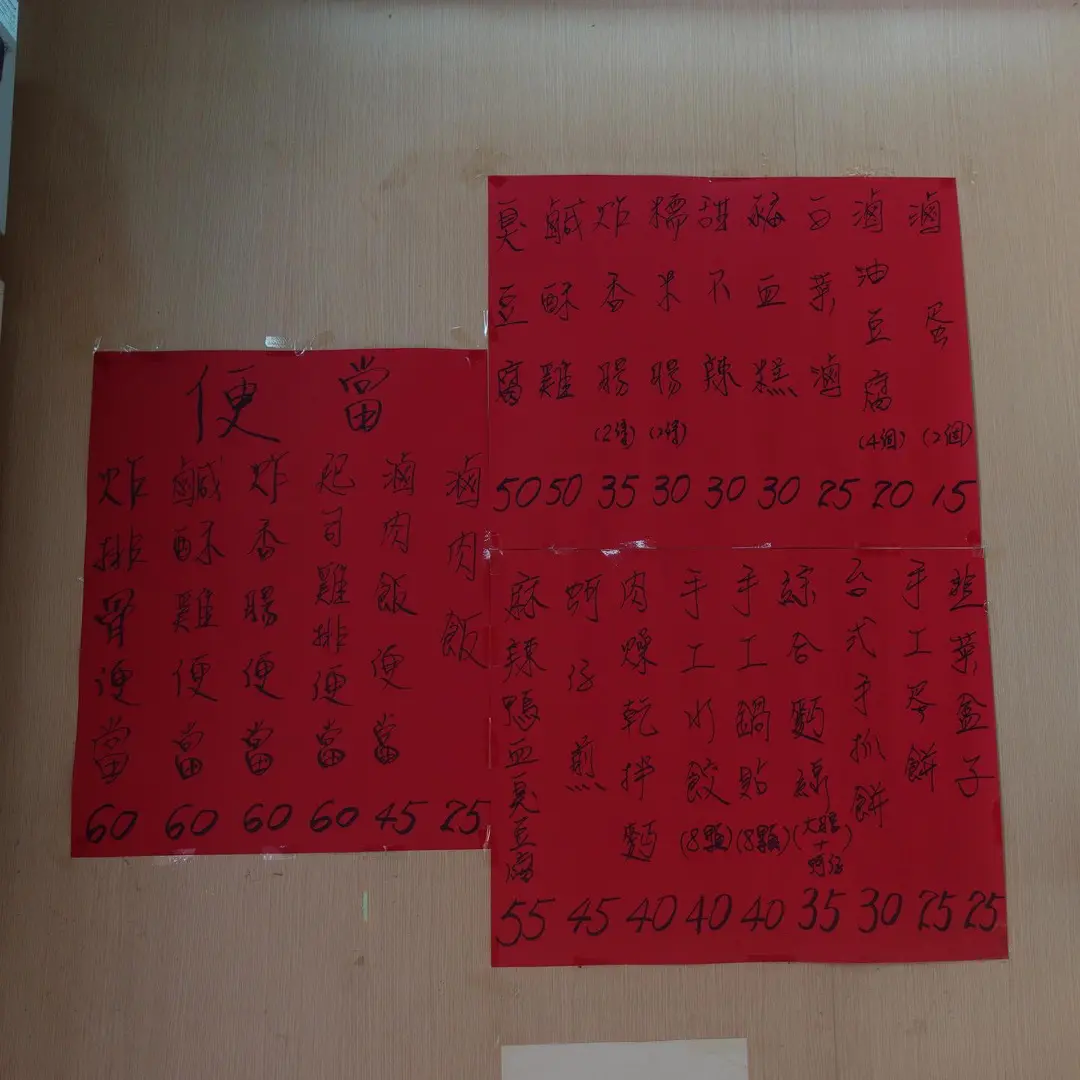 便當
炸排骨便當 60
鹹酥雞便當 60
炸香腸便當 60
起司雞排便當 60
滷肉飯便當 45
滷肉飯 25
臭豆腐 50
鹹酥雞 50
炸香腸(2條) 35
糯米腸(2條) 30
甜不辣 30
豬血糕 30
百葉滷 25
滷油豆腐(4個) 20
滷蛋(2個) 15
麻辣鴨血臭豆腐 55
蚵仔煎 45
肉燥乾拌麵 40
手工水餃(8顆) 40
手工鍋貼(8顆) 40
綜合麵線(大腸+蚵仔) 35
台式手抓餅 30
手工蛋餅 25
韮菜盒子 25